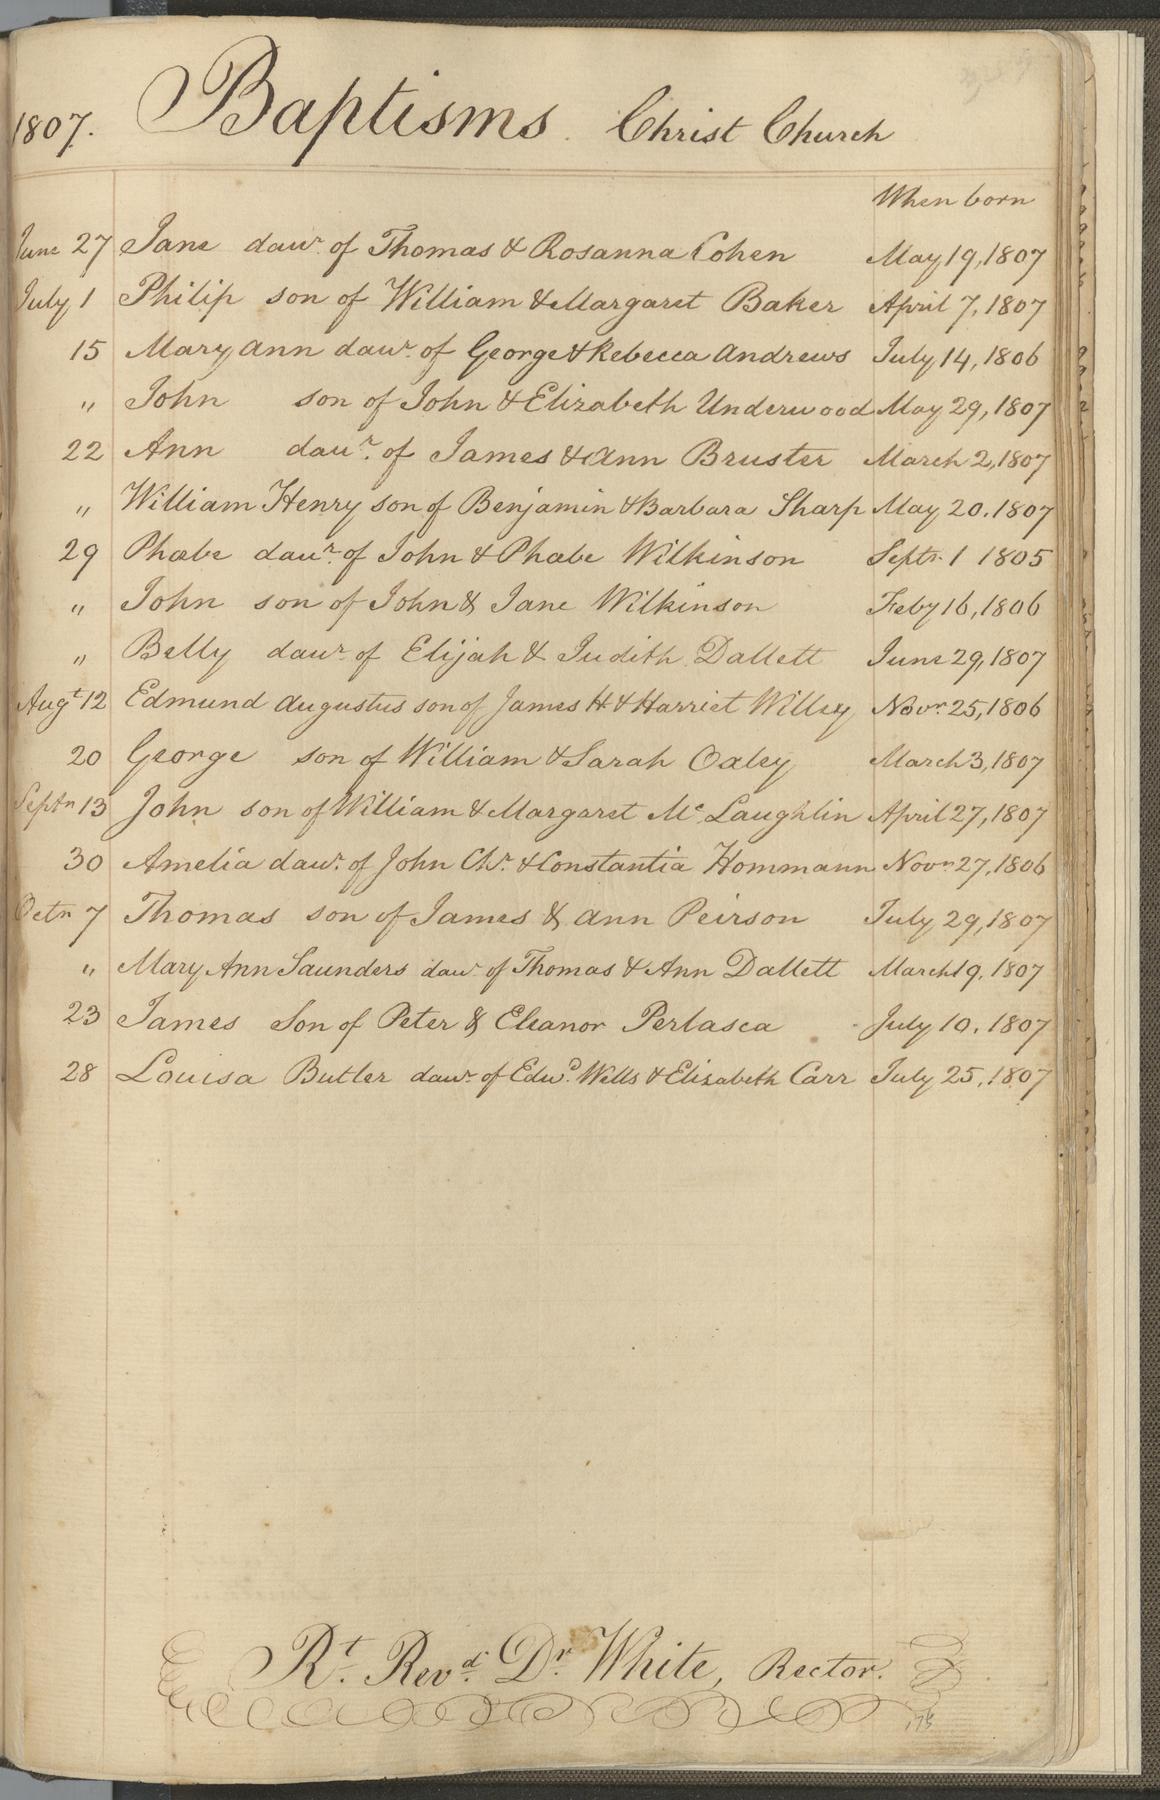 1807. Baptisms. Christ Church
When born
June 27 Jane dawr. of Thomas & Rosanna Cohen May 19, 1807
July 1 Philip son of William & Margaret Baker April 7, 1807
15 Mary Ann dawr. of George & Rebecca Andrews July 14, 1806
" John son of John & Elizabeth Underwood May 29, 1807
22 Ann daur. of James & Ann Bruster March 2, 1807
" William Henry son of Benjamin & Barbara Sharp May 20. 1807
29 Phœbe daur. of John & Phœbe Wilkinson Septr. 1 1805
" John son of John & Jane Wilkinson Feby 16, 1806
" Betty dawr. of Elijah & Judith Dallett June 29, 1807
Augt 12 Edmund Augustus son of James H & Harriet Willey Novr. 25, 1806
20 George son of William & Sarah Oxley March 3, 1807
Septr 13 John son of William & Margaret Mc Laughlin April 27, 1807
30 Amelia dawr. of John Chr. & Constantia Hommann Novr. 27, 1806
Octr 7 Thomas son of James & Ann Peirson July 29, 1807
" Mary Ann Saunders dawr. of Thomas & Ann Dallett March 19. 1807
23 James Son of Peter & Eleanor Perlasca July 10. 1807
28 Louisa Butler dawr. of Edwd. Wells & Elizabeth Carr July 25, 1807
Rt. Revd. Dr. White, Rector.
175